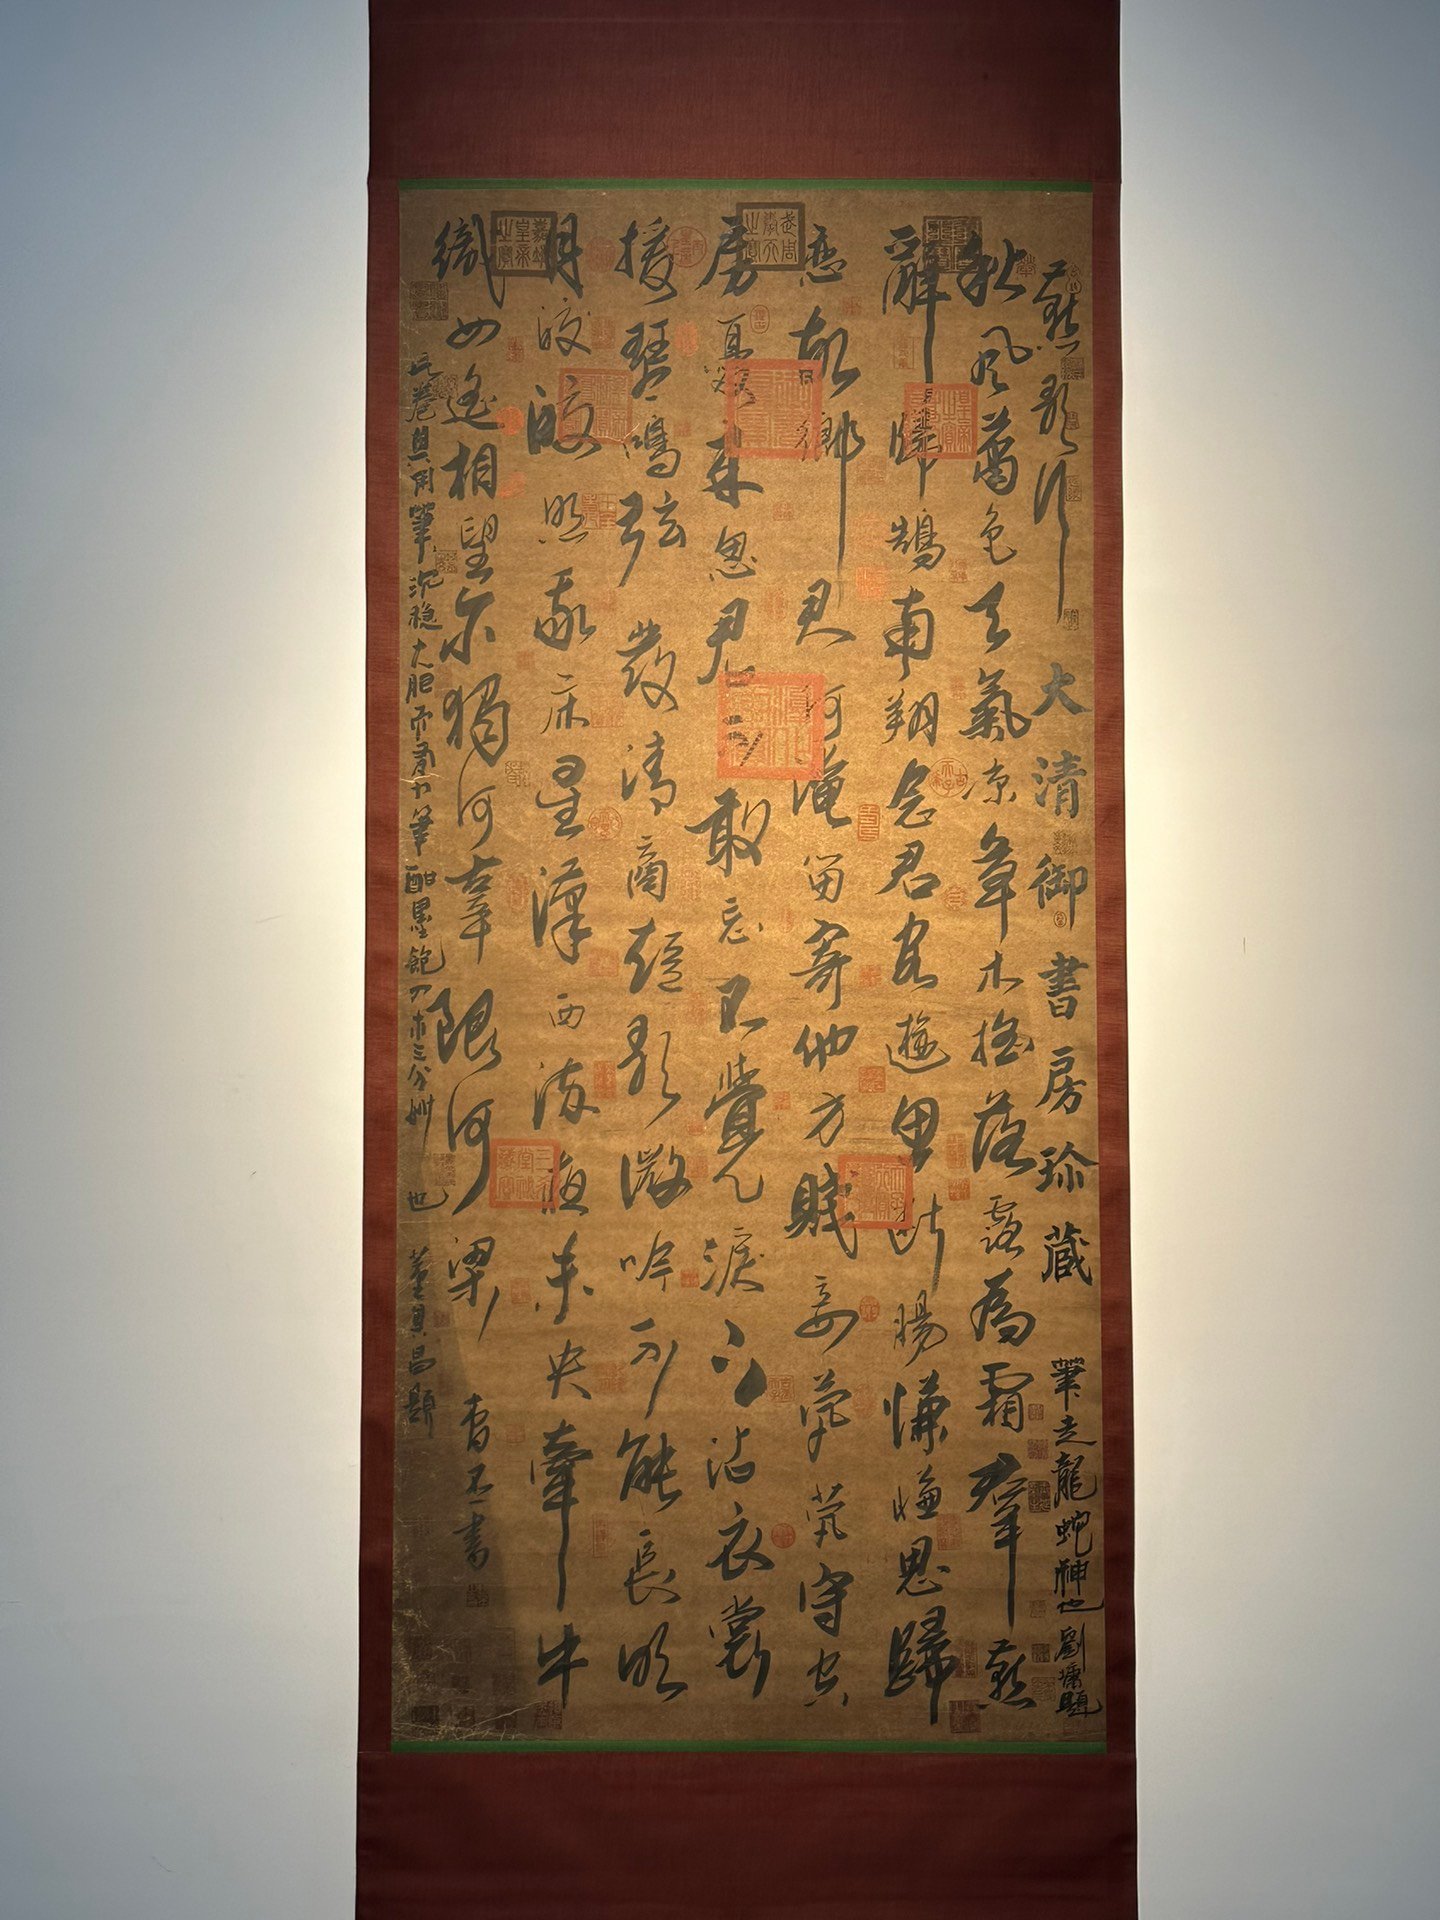 燕歌行
大清御書房珍藏
筆走龍蛇神也 劉墉題
秋風蕭瑟天氣涼草木搖落露為霜羣燕
辭歸鵠南翔念君客遊思斷腸慊慊思歸
戀故鄉君何淹留寄他方賤妾煢煢守空
房憂來思君不敢忘不覺淚下沾衣裳
援琴鳴弦發清商短歌微吟不能長明
月皎皎照我床星漢西流夜未央牽牛
織女遙相望尔獨何辜限河梁 曹丕書
用筆沉穩大胆而有力筆酣墨飽入木三分
也 董其昌題